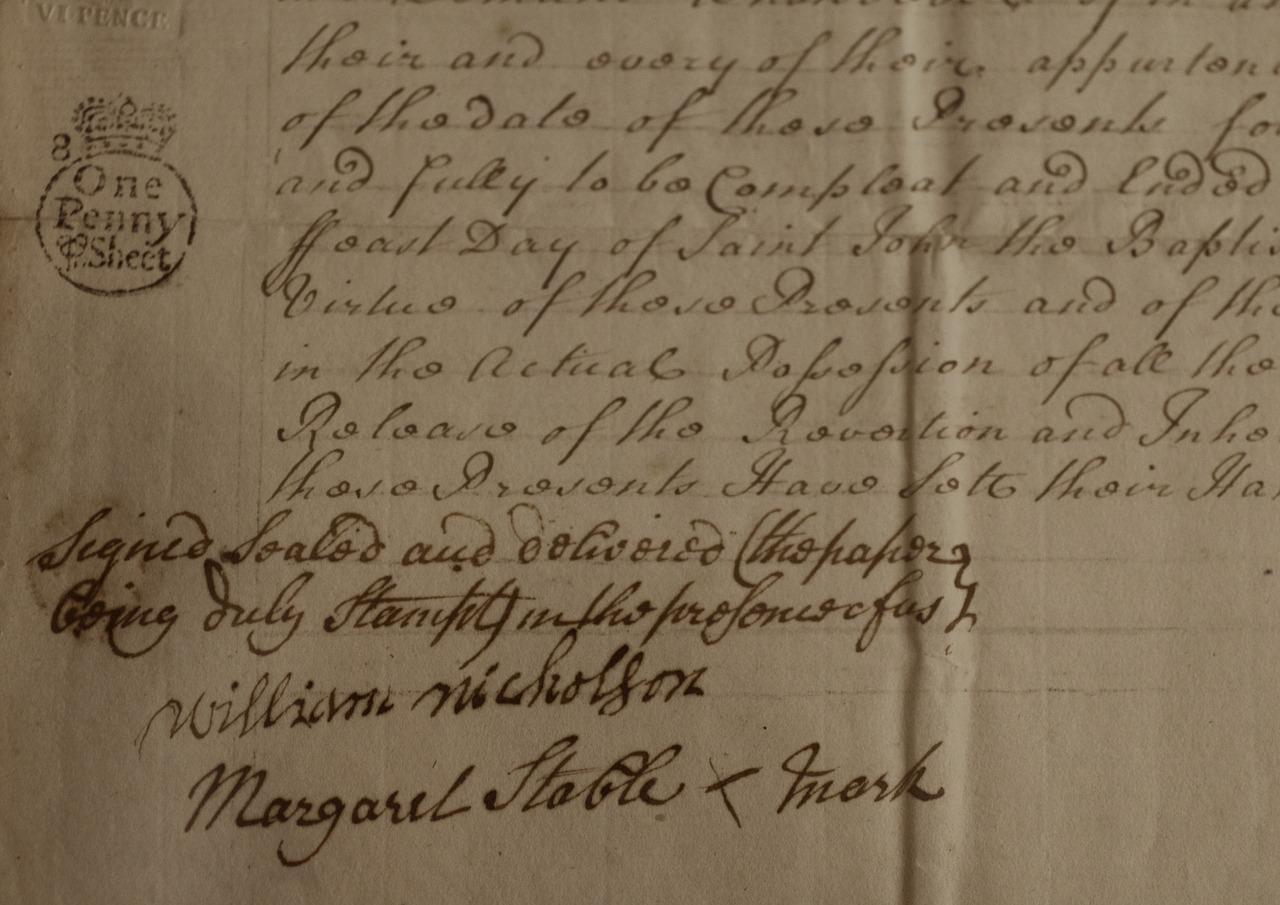 VI PENCE
their and every of their appurten
of the date of these Presents fo
and fully to be Compleat and Ended
ffeast Day of Saint John the Baptis
Virtue of these Presents and of the
in the Actual Possession of all the
Release of the Revertion and Inhe
these Presents Have Sett their Han
8
One
Penny
P Sheet
Signed Sealed and delivered (the paper
being duly Stampt) in the presence of us
William Nicholson
Margaret Stable X mark